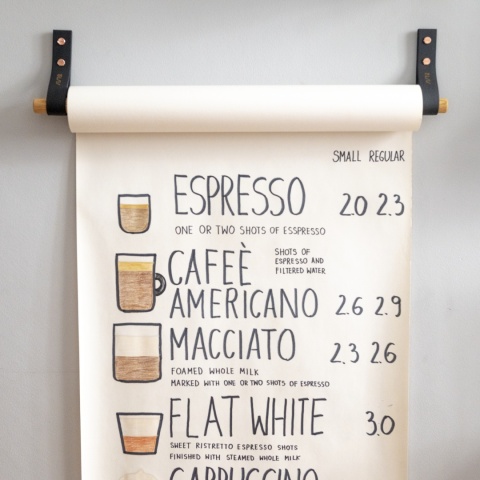 SMALL REGULAR
ESPRESSO 2.0 2.3
ONE OR TWO SHOTS OF ESSPRESSO
CAFEÈ
SHOTS OF
ESPRESSO AND
FILTERED WATER
AMERICANO 2.6 2.9
MACCIATO 2.3 2.6
FOAMED WHOLE MILK
MARKED WITH ONE OR TWO SHOTS OF ESPRESSO
FLAT WHITE 3.0
SWEET RISTRETTO ESPRESSO SHOTS
FINISHED WITH STEAMED WHOLE MILK
CAPPUCCINO